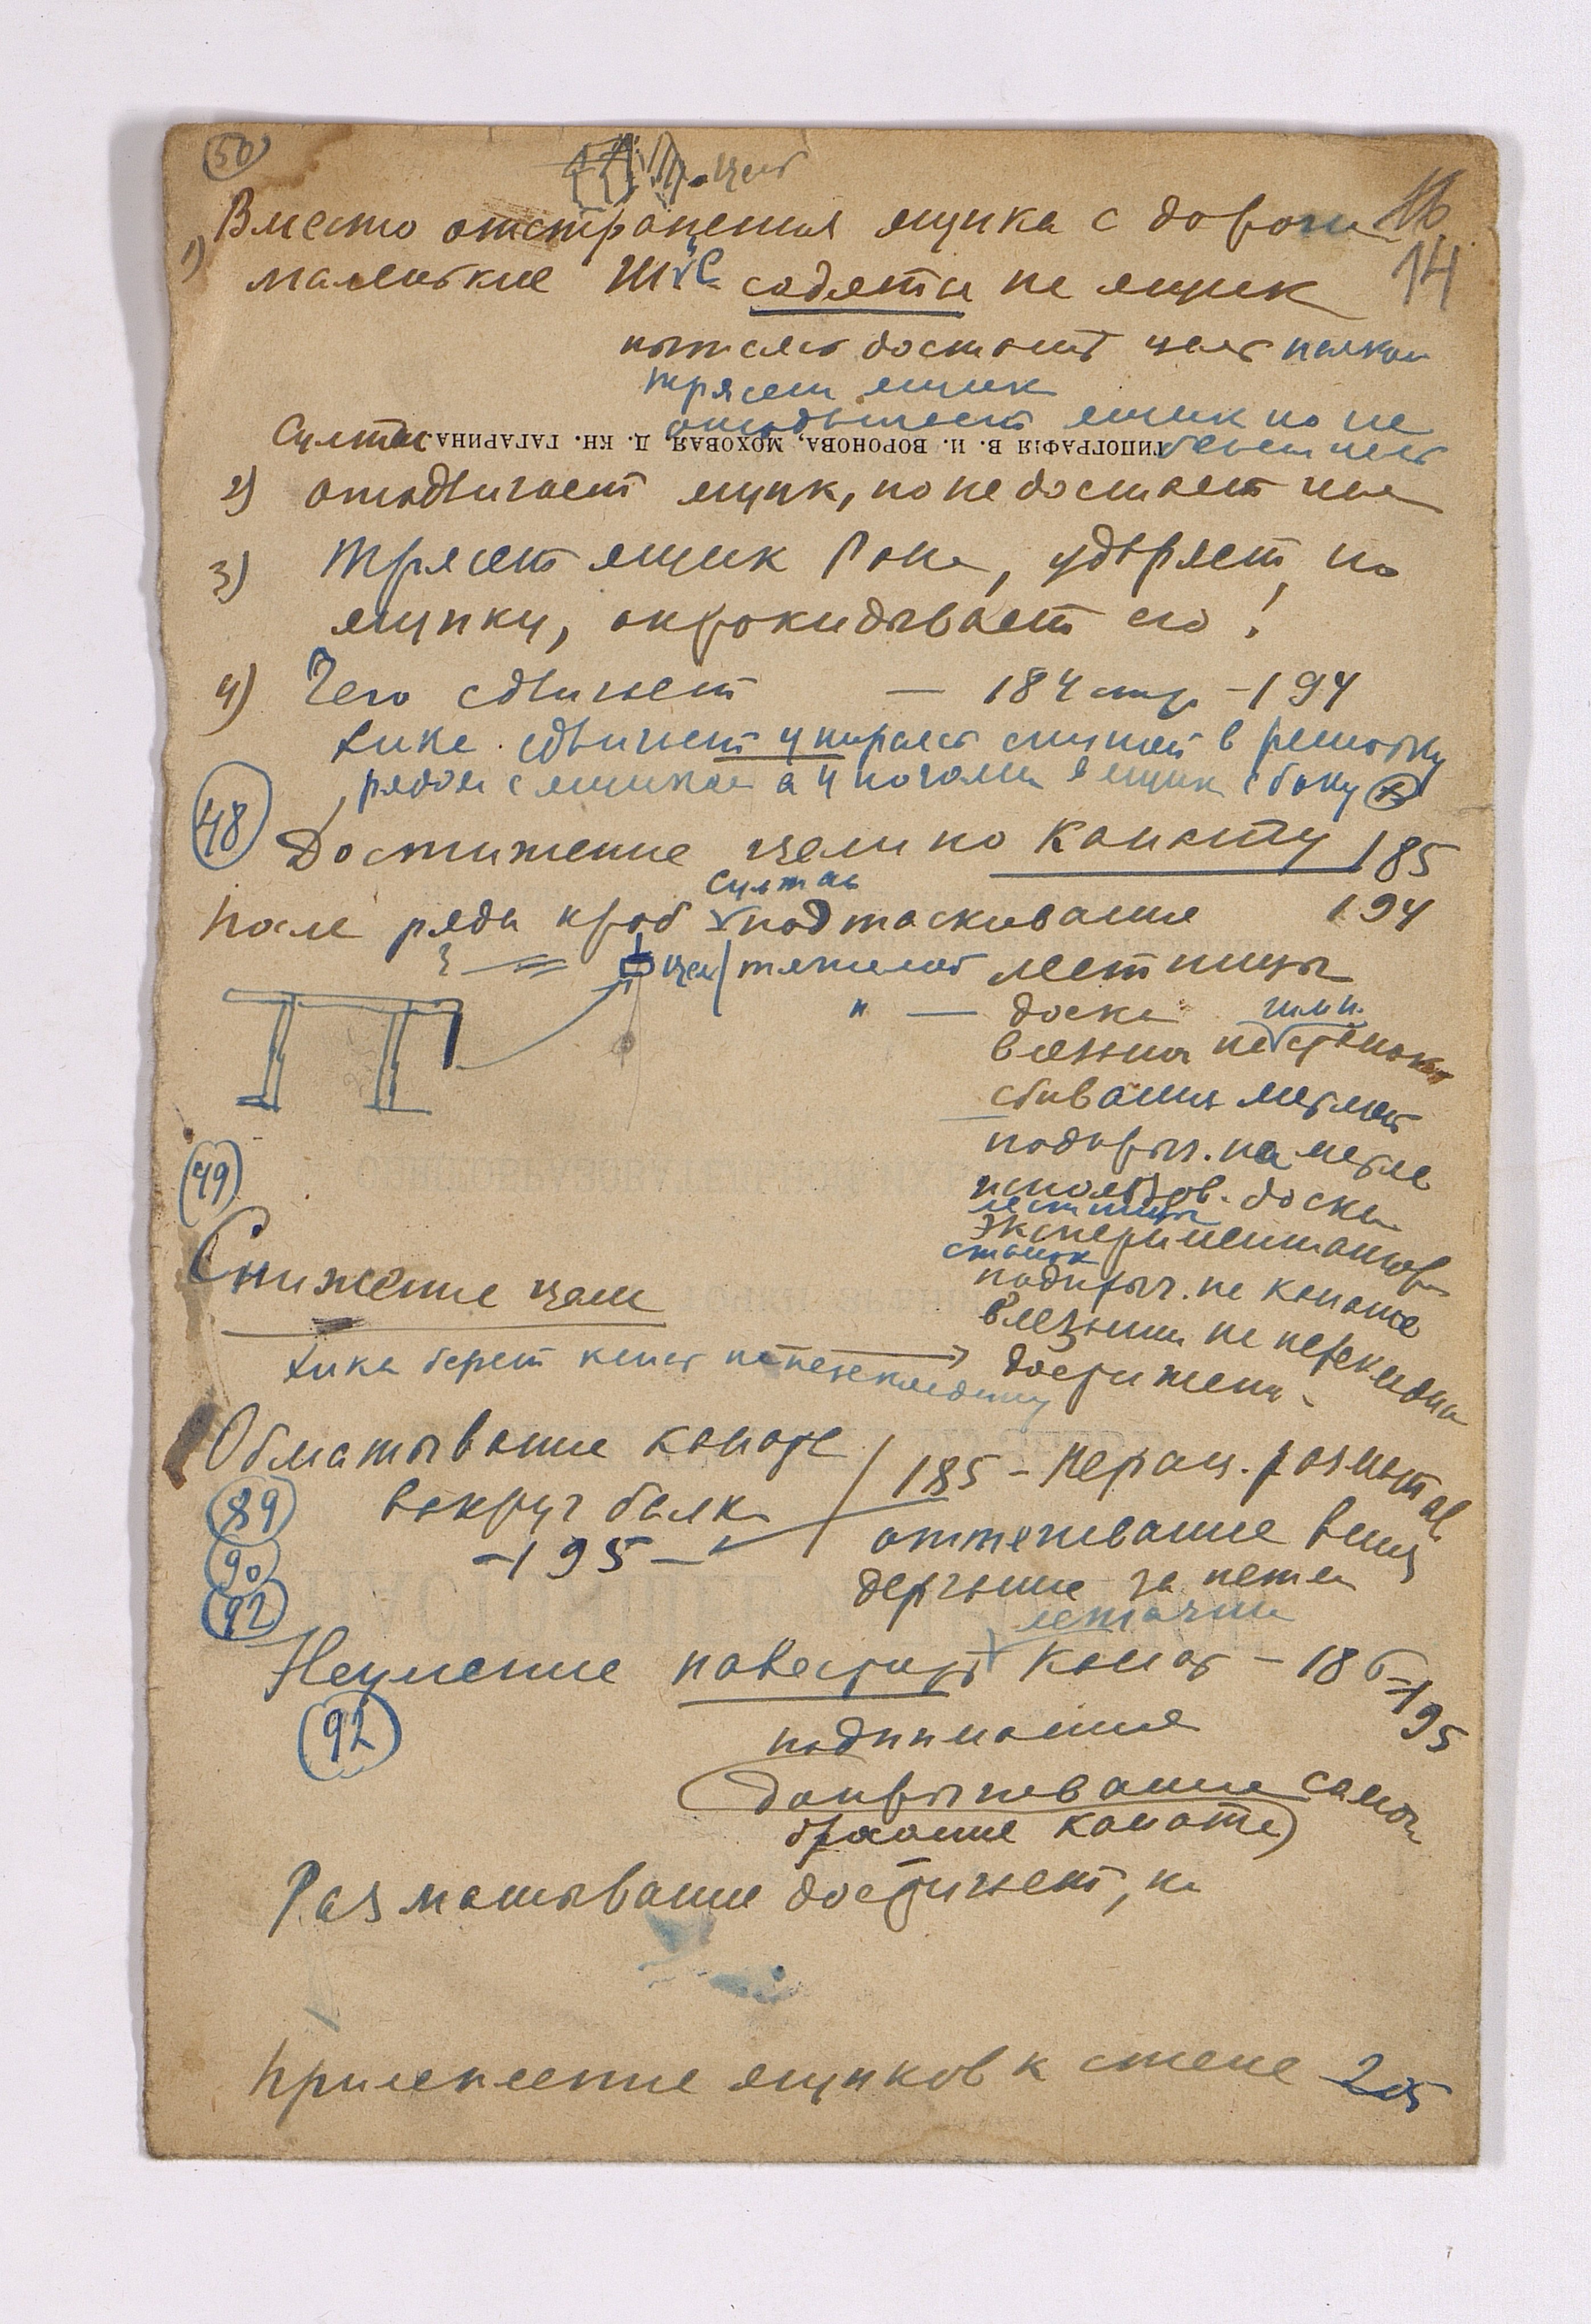 50
цель
16
14
1) Вместо отстранения ящика с дороги
маленькие Ш и С садятся на ящик
пытаясь достать цель палкой
трясет ящик
отодвигает ящик но не
Султан
ТИПОГРАФІЯ В. И. ВОРОНОВА, МОХОВАЯ, Д. КН. ГАГАРИНА.
2) отодвигает ящик, но не достает цели
3) Трясет ящик Рана, ударяет по
ящику, опрокидывает его!
4) Чего сдвигает — 184 стр. - 194
сдвигает упираясь спиной в решетку
рядом с ящиком а ногами в ящик сбоку
48
Достижение цели по канату 185
После ряда проб Султан подтаскивание 194
цель тяжелой лестницы
" — доска
влезания на
сбивания метлой
подпрыг. на метле
использов. доски
лестницы
экспериментатор
станок
подпрыг. на канате
влезании на перекладину
49
Снижение цели
берет канат на перекладину → достижени
Обматывание каната / 185 - неран. размотав
вокруг балки
89
90
92
- 195 -
оттягивание вниз
дерганье за петли
Неумение навесить канат - 186 - 195
92
поднимания
(допрыгивание самой
бросание каната)
Разматывание достигает, но
Приложение ящиков к стене 205